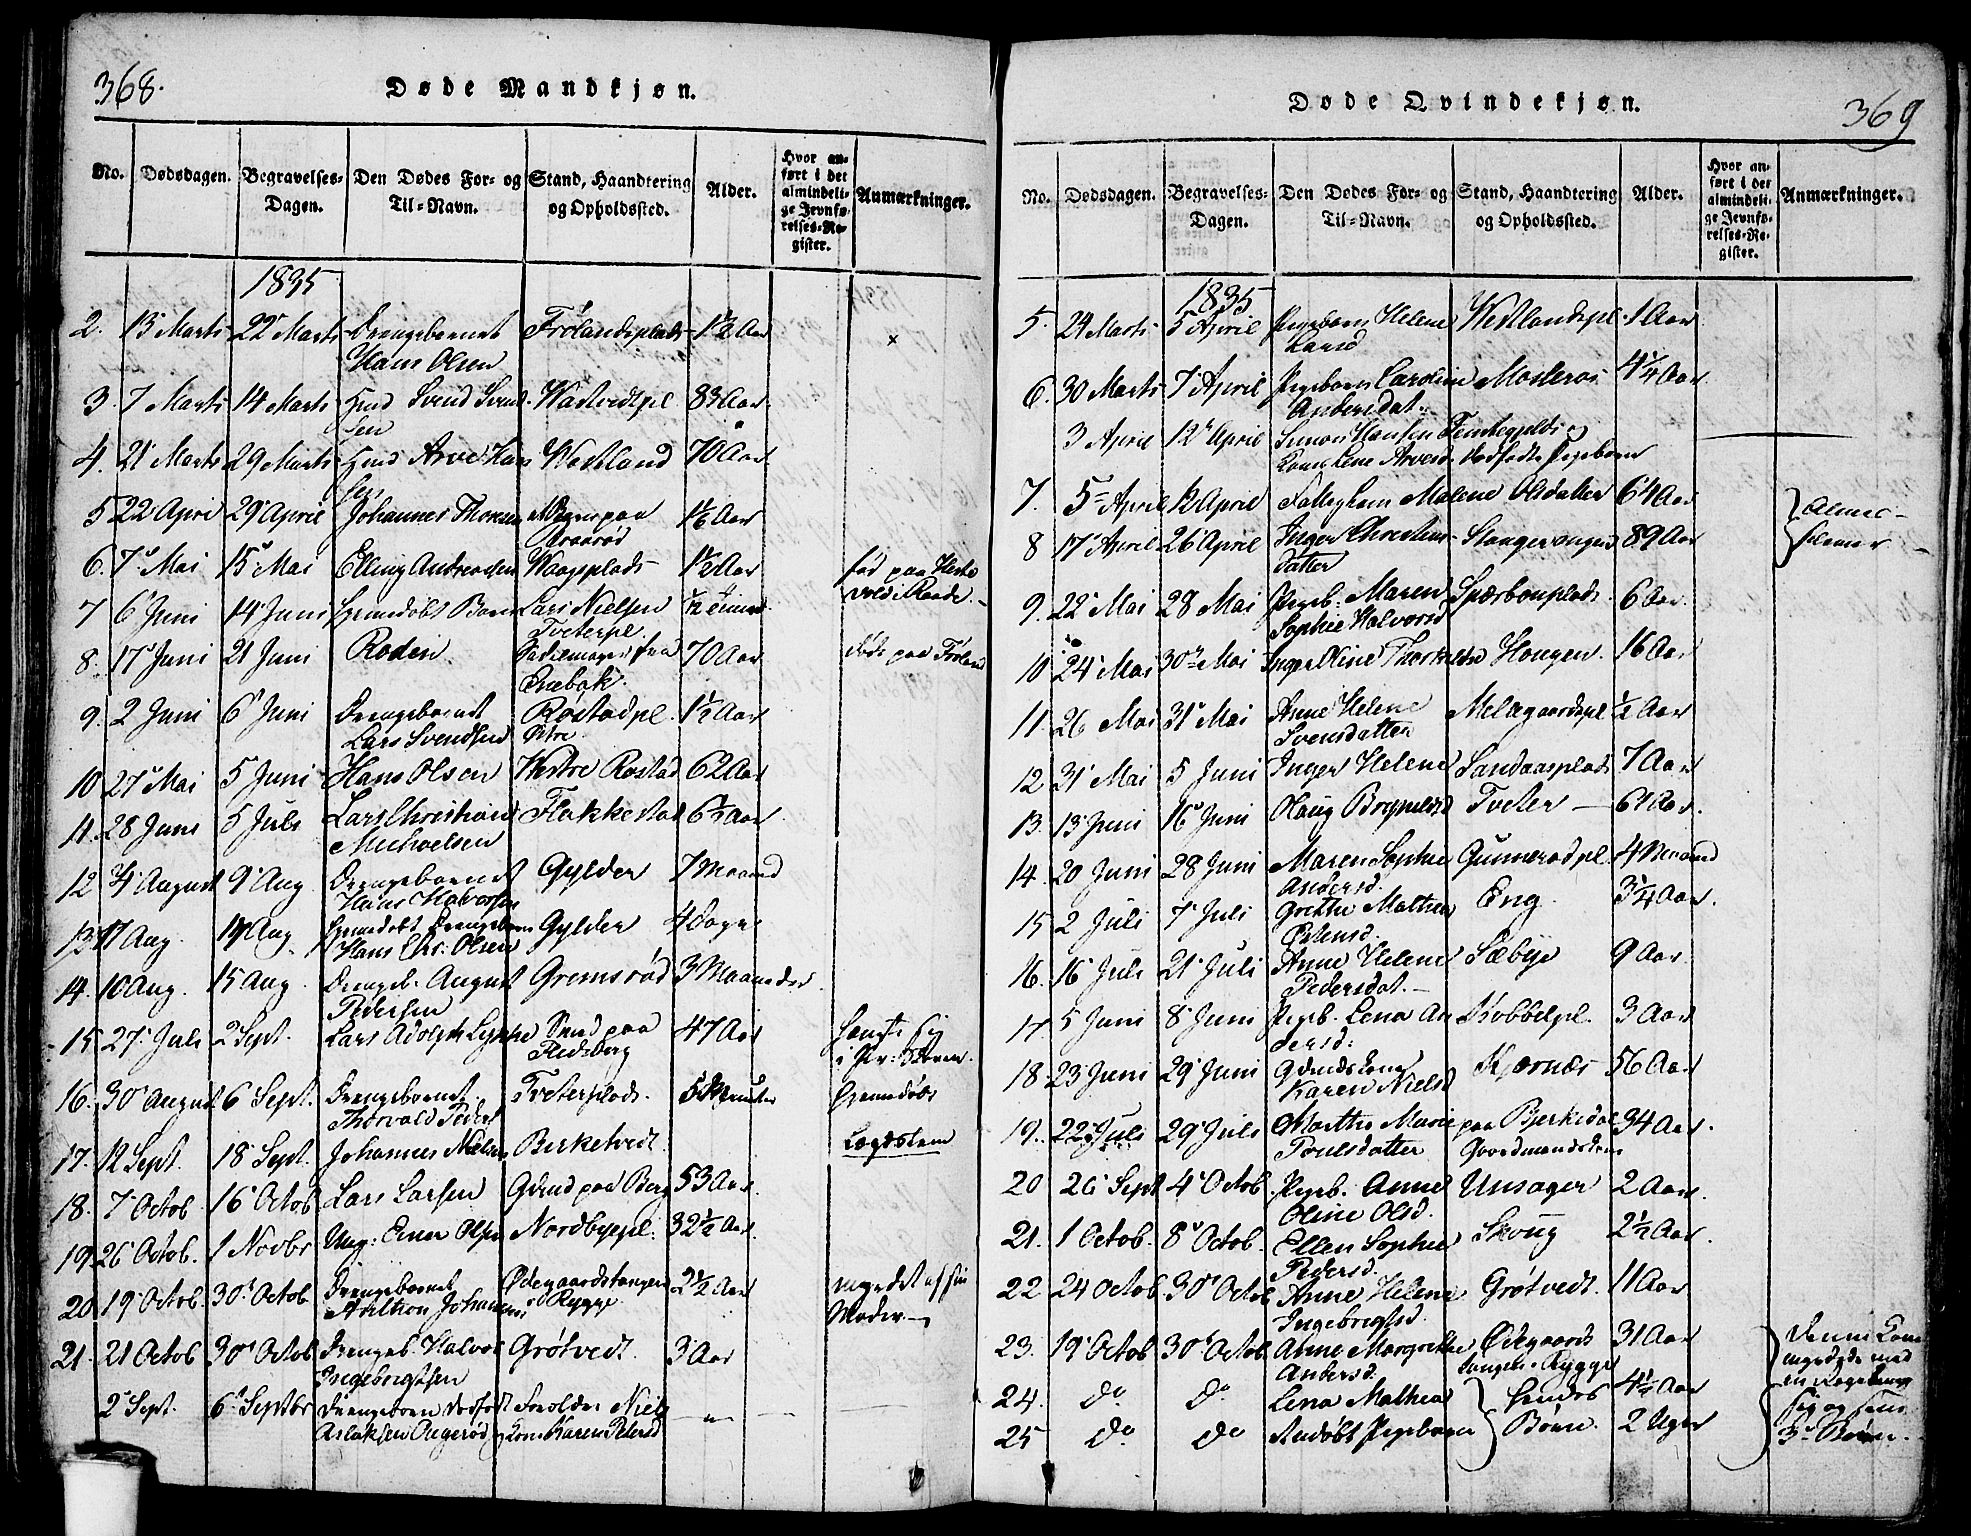 368.
Døde Mandkjøn.
No. Dødsdagen. Begravelses-Dagen. Den Dødes For- og Til-Navn. Stand, Haandtering og Opholdssted. Alder. Hvor anført i det almindelige Jevnførelses-Register. Anmærkninger.
1835
2. 13 Marts 22 Marts Drengebarnet Frølandsplads 1½ Aar ×
Hans Olsen
3. 7 Marts 14 Marts Svend Svend- Wastvedtpl 83 Aar
sen
4. 21 Marts 29 Marts Arve Han Westland 70 Aar
sen
5 22 Apri 29 April Johannes paa 1⅙ Aar
6. 7 Mai 15 Mai Elling Andreasen Waagsplads 1½ Aar fød paa
i Raade.
7 6 Juni 14 Juni Barn Lars Nielsen
Tveterpl.
8. 17 Juni 21 Juni Roden fra 70 Aar døde paa Frøland
Enebak.
9. 2 Juni 6 Juni Drengebarnet Røstadpl. 1½ Aar
Lars Svendsen Østre
10 27 Mai 5 Juni Hans Olsen Westre Rostad 62 Aar
11. 28 Juni 5 Juli Lars Christian Flakkestad 6½ Aar
Michaelsen
12 4 August 9 Aug Drengebarnet Gylder 7 Maaned
Hans Halvorsen
13 11 Aug. 14 Aug Drengebarn Gylder 4 Dage
Hans Chr. Olsen
14. 10 Aug. 15 Aug Drengeb. August Gremsrød 3 Maaneder
Pedersen
15 27 Juli 2 Sept. Lars Adolph paa 47 Aar hengte sig
16. 30 August 6 Sept. Drengebarnet Tveterplads. 5 Minuter
Thorvald Peders
17. 12 Sept. 18 Sept. Johannes Nielsen Birketvedt Lagdslem
18. 7 Octob 16 Octob Lars Larsen Gdmd paa Berg 53 Aar.
19. 26 Octob. 1 Novbr Ung: Einer Olsen Nordbyepl: 32½ Aar
20 19 Octob. 30 Octob Drengebarnet Ødegaardstangen 2½ Aar myrdet af sin
Johannes i Rygge Moder.
21. 21 Octob 30 Octob Drengeb. Halvor Grøtvedt 3 Aar
Ingebrigtsen
2 Sept. 6 Septbr Drengebarn dødfødt Foreldre Niels
Aslaksen Ougerød og Kone Karen Pedersd

369
Døde Qvindekjøn.
No. Dødsdagen. Begravelses-Dagen. Den Dødes For- og Til-Navn. Stand, Haandtering og Opholdssted. Alder. Hvor anført i det almindelige Jevnførelses-Register. Anmærkninger.
1835
5. 24 Marts 5 April Pigebarn Helene Westlandspl 1 Aar
Larsd
6. 30 Marts 7 April Pigebarn Caroline Mosteros 4¼ Aar
Andersdat.
3 April 12 April Simon Hansen
Kone Lene Arvesd dødfødte Pigebarn
7. 5 April 12 April Fattighem Malene Olsdatter 64 Aar } Almis-
8 17 April 26 April Inger Christens- Stangerengen 89 Aar } lemer
datter
9. 22 Mai 28 Mai Pigeb: Maren Spærbonplads. 6 Aar.
Sophie Halvorsd
10 24 Mai 30 Mai Inger Oline Haugen. 16 Aar
11. 26 Mai 31 Mai Anne Helene Melegaardspl ½ Aar
Svensdatter
12 31 Mai 5 Juni Inger Helene Sandaasplads 7 Aar
13. 13 Juni 16 Juni Olaug Tveter 61 Aar.
14. 20 Juni 28 Juni Maren Sophie Gunnerødpl. 4 Maaned
Andersd.
15 2 Juli 7 Juli Grethe Mathea Eng. 3¼ Aar.
Østensd.
16. 16 Juli 21 Juli Anne Helene Sæbye 9 Aar.
Pedersdat.
17. 5 Juni 8 Juni Pigeb. Lena An Kobbelpl. 3 Aar
dersd:
18. 23 Juni 29 Juni Gdmds Kone Kjærnes 56 Aar
Karen Nielsd
19. 22 Juli 29 Juli Marthe Marie paa Bjerkedal 34 Aar.
Poulsdatter Gaardmandskone
20 26 Sept 4 Octob. Pigeb. Anne Unsager 2 Aar.
Oline Olsd.
21. 1 Octob. 8 Octob. Ellen Sophie Skoug 2½ Aar.
Pedersd.
22 24 Octob 30 Octob Anne Helene Grøtvedt. 11 Aar
Ingebrigtsd.
23. 19 Octob 30 Octob. Anne Margrethe Ødegaards 31 Aar } Denne Kone
Andersd. tangen i Rygge myrdede med
24. do do Lena Mathea } hendes 4¼ Aar en
25 do do Andøbt Pigebarn } Børn. 2 Uger sig og sine
3 Børn.